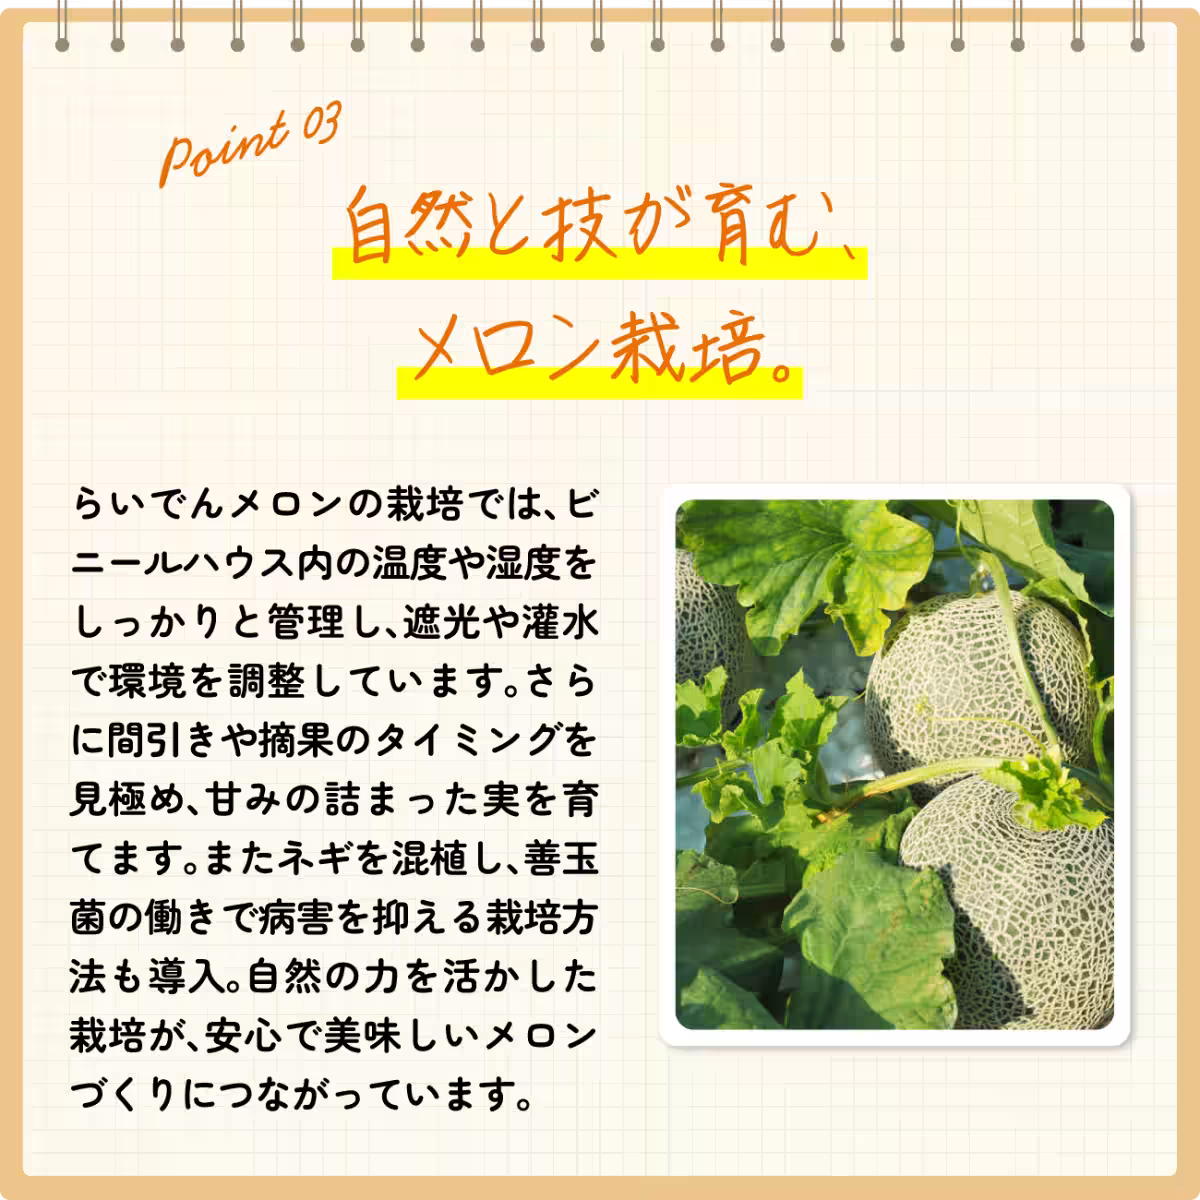 Point 03
自然と技が育む、
メロン栽培。
らいでんメロンの栽培では、ビ
ニールハウス内の温度や湿度を
しっかりと管理し、遮光や灌水
で環境を調整しています。さら
に間引きや摘果のタイミングを
見極め、甘みの詰まった実を育
てます。またネギを混植し、善玉
菌の働きで病害を抑える栽培方
法も導入。自然の力を活かした
栽培が、安心で美味しいメロン
づくりにつながっています。